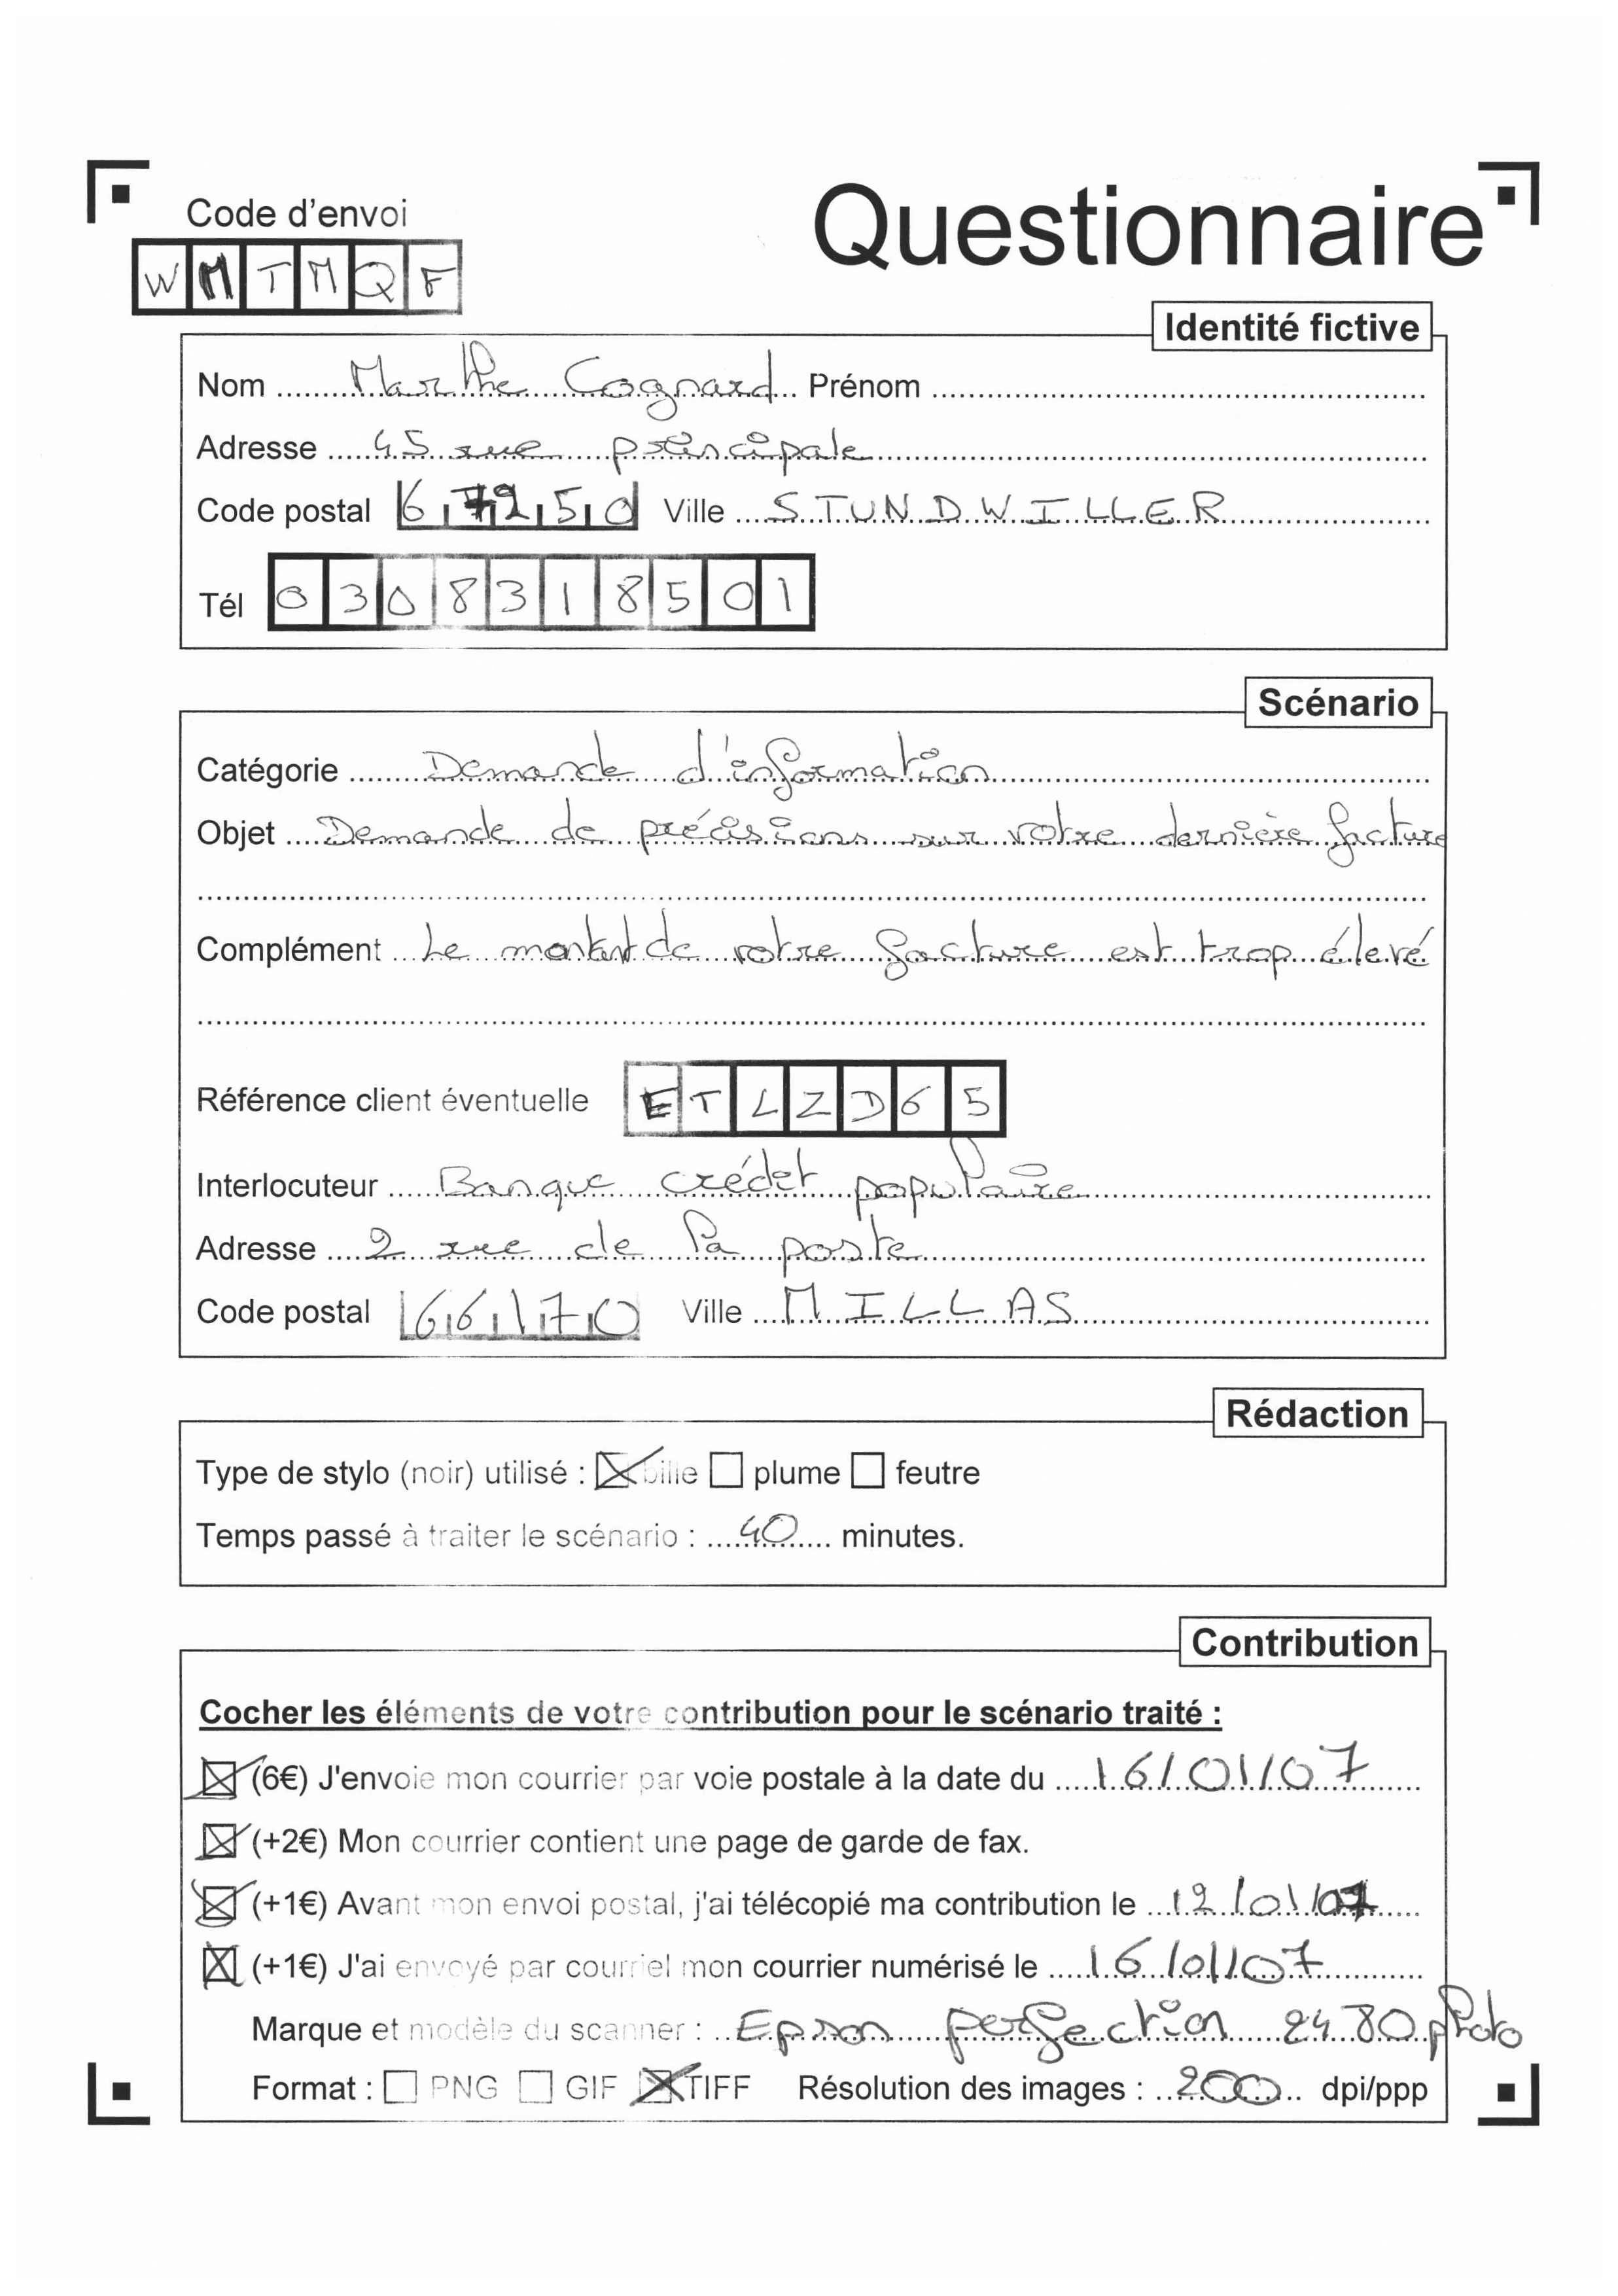 Code d'envoi
Questionnaire
W M T M Q F
Identité fictive
Nom Marthe Cognard Prénom
Adresse 45 rue principale
Code postal 67250 Ville STUNDWILLER
Tél 0308318501
Scénario
Catégorie Demande d'information
Objet Demande de précisions sur votre dernière facture
Complément Le montant de votre facture est trop élevé
Référence client éventuelle E T L Z D 6 5
Interlocuteur Banque crédit populaire
Adresse 2 rue de la poste
Code postal 66170 Ville MILLAS
Rédaction
Type de stylo (noir) utilisé : bille plume feutre
Temps passé à traiter le scénario : 40 minutes.
Contribution
Cocher les éléments de votre contribution pour le scénario traité :
(6€) J'envoie mon courrier par voie postale à la date du 16/01/07
(+2€) Mon courrier contient une page de garde de fax.
(+1€) Avant mon envoi postal, j'ai télécopié ma contribution le 12/01/07
(+1€) J'ai envoyé par courriel mon courrier numérisé le 16/01/07
Marque et modèle du scanner : Epson perfection 2480 photo
Format : PNG GIF TIFF Résolution des images : 200 dpi/ppp